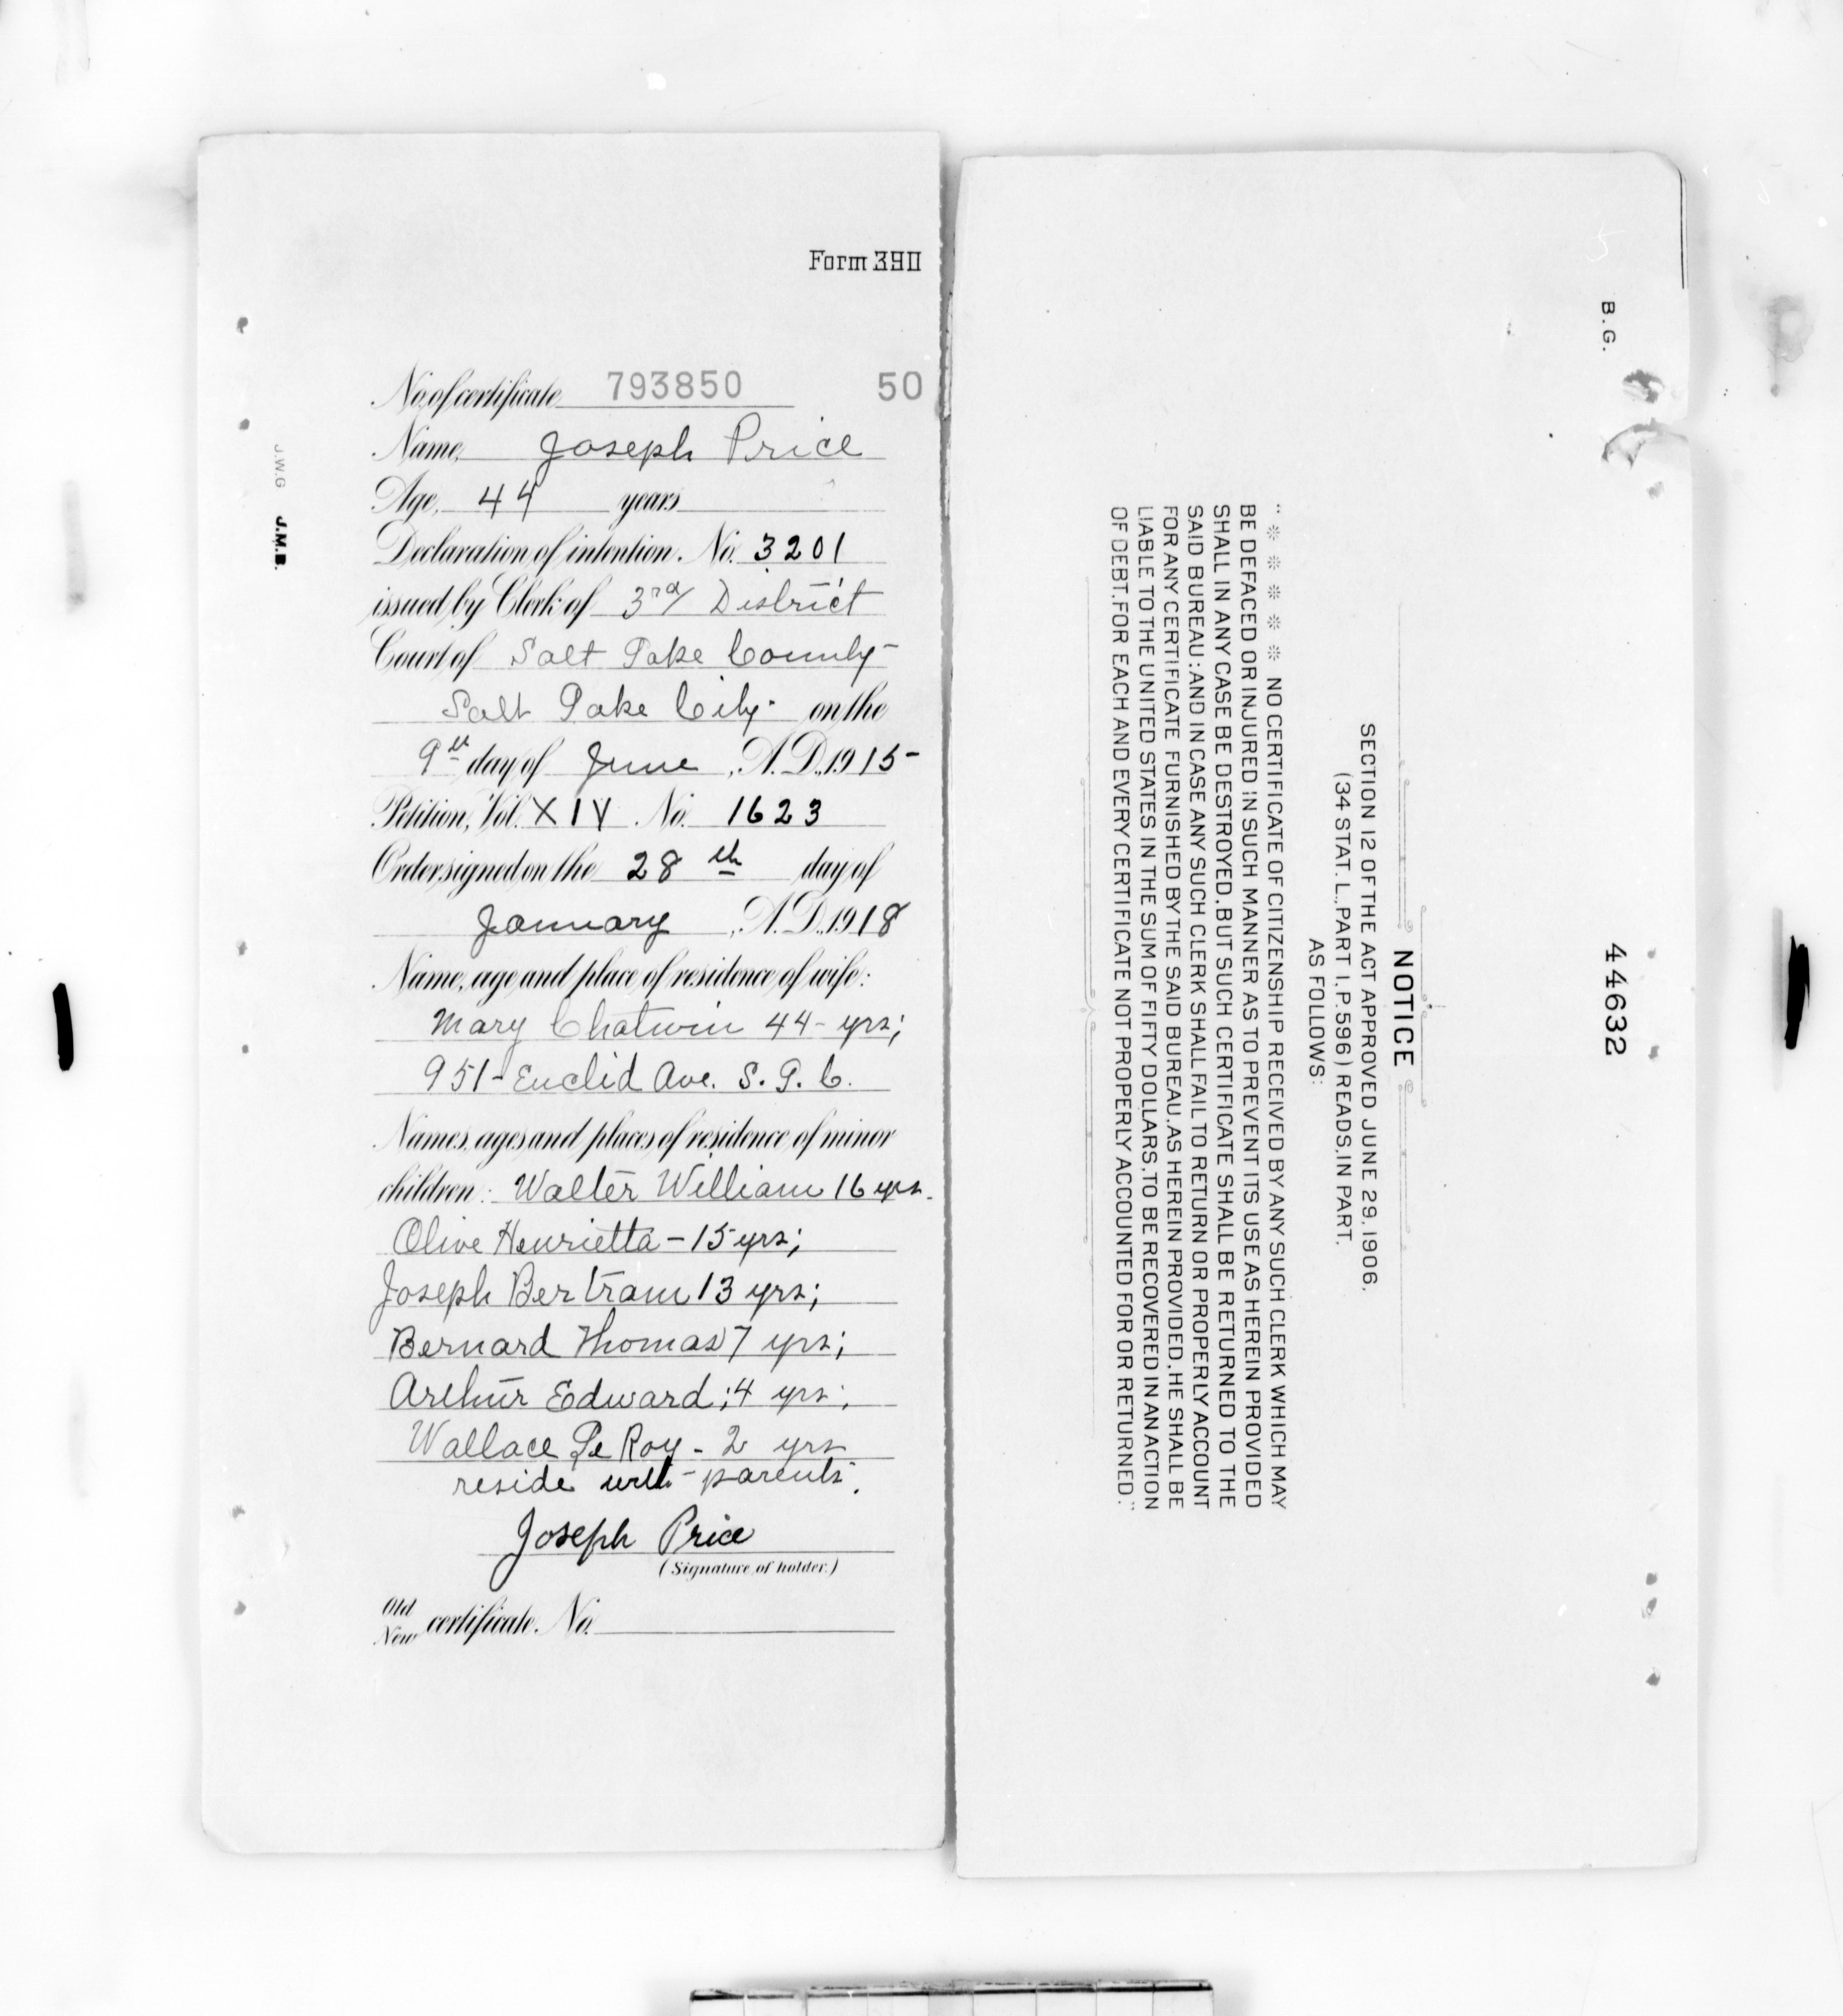 Form 390
No. of certificate 793850 50
Name, Joseph Price
Age, 44 years
Declaration of intention. No. 3201
issued by Clerk of 3rd District
Court of Salt Lake County
Salt Lake City. on the
9th day of June, A.D. 1915
Petition, Vol. XIV No. 1623
Order signed on the 28th day of
January, A.D. 1918
Name, age and place of residence of wife:
Mary Chatwin 44 yrs;
951 - Euclid Ave. S. L. C.
Names, ages and places of residence of minor
children: Walter William 16 yrs.
Olive Henrietta - 15 yrs;
Joseph Bertram 13 yrs;
Bernard Thomas 7 yrs;
Arthur Edward; 4 yrs;
Wallace Le Roy - 2 yrs
reside with parents.
Joseph Price
(Signature of holder.)
Old
New certificate. No.
J.W.G J.M.B.
B.G.
44632
NOTICE
SECTION 12 OF THE ACT APPROVED JUNE 29, 1906,
(34 STAT. L., PART I, P. 596) READS, IN PART,
AS FOLLOWS:
"※ ※ ※ ※ ※ NO CERTIFICATE OF CITIZENSHIP RECEIVED BY ANY SUCH CLERK WHICH MAY
BE DEFACED OR INJURED IN SUCH MANNER AS TO PREVENT ITS USE AS HEREIN PROVIDED
SHALL IN ANY CASE BE DESTROYED, BUT SUCH CERTIFICATE SHALL BE RETURNED TO THE
SAID BUREAU: AND IN CASE ANY SUCH CLERK SHALL FAIL TO RETURN OR PROPERLY ACCOUNT
FOR ANY CERTIFICATE FURNISHED BY THE SAID BUREAU, AS HEREIN PROVIDED, HE SHALL BE
LIABLE TO THE UNITED STATES IN THE SUM OF FIFTY DOLLARS, TO BE RECOVERED IN AN ACTION
OF DEBT, FOR EACH AND EVERY CERTIFICATE NOT PROPERLY ACCOUNTED FOR OR RETURNED."